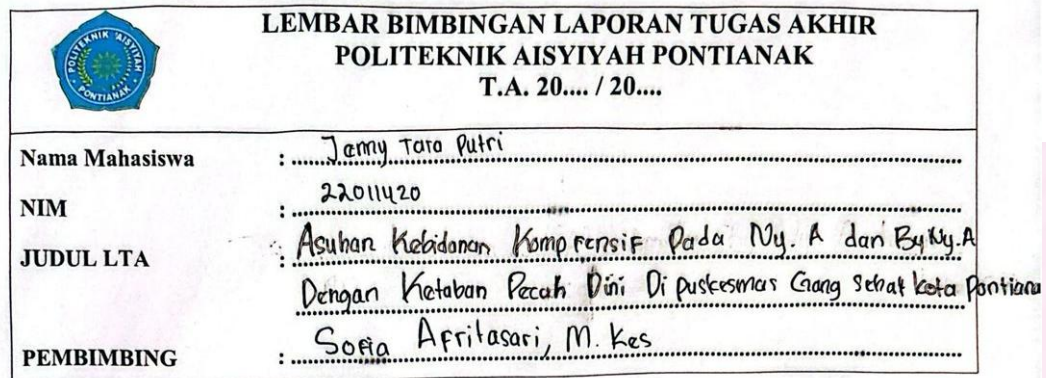 POLITEKNIK 'AISYIYAH
PONTIANAK
LEMBAR BIMBINGAN LAPORAN TUGAS AKHIR
POLITEKNIK AISYIYAH PONTIANAK
T.A. 20.... / 20....
Nama Mahasiswa : Jenny Tara Putri
NIM : 22011420
JUDUL LTA : Asuhan Kebidanan Komprensif Pada Ny. A dan By Ny. A
Dengan Ketaban Pecah Dini Di Puskesmas Gang Sehat Kota Pontiana
PEMBIMBING : Sofia Afritasari, M. Kes